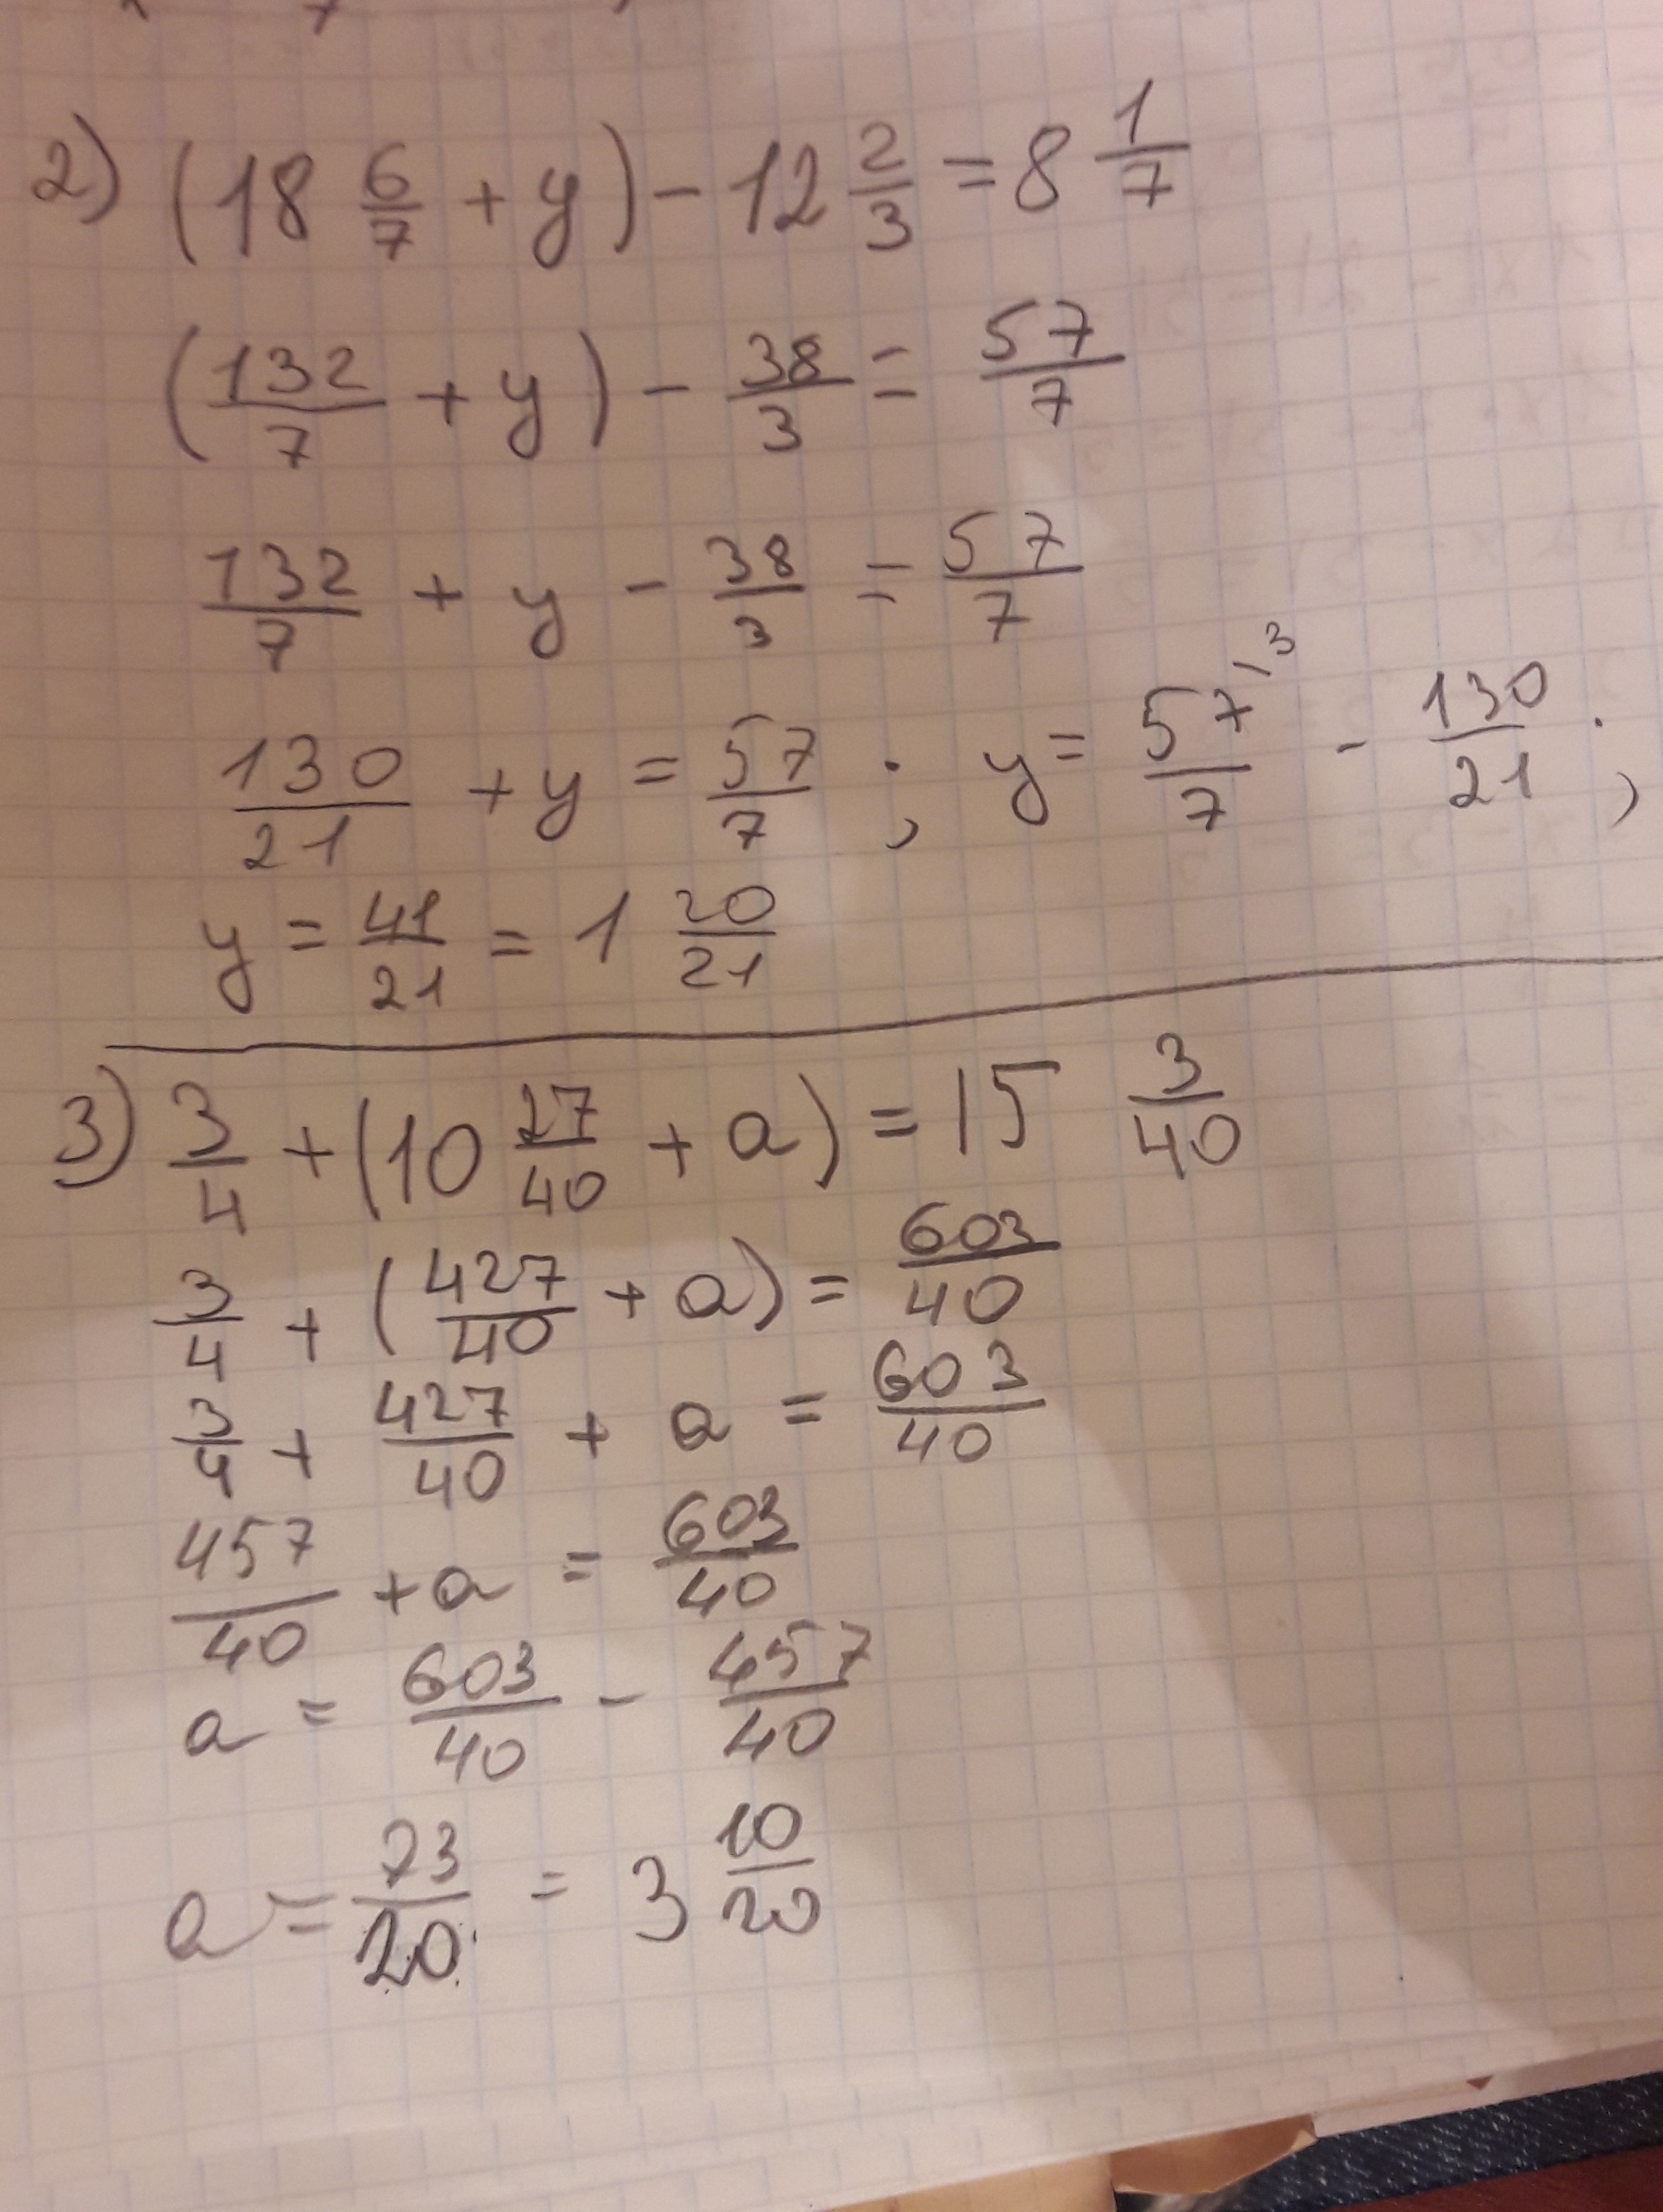 2) (18 6/7 + y) - 12 2/3 = 8 1/7
(132/7 + y) - 38/3 = 57/7
132/7 + y - 38/3 = 57/7
130/21 + y = 57/7 ; y = 57/7 \3 - 130/21 ;
y = 41/21 = 1 20/21
3) 3/4 + (10 27/40 + a) = 15 3/40
3/4 + (427/40 + a) = 603/40
3/4 + 427/40 + a = 603/40
457/40 + a = 603/40
a = 603/40 - 457/40
a = 73/20 = 3 10/20